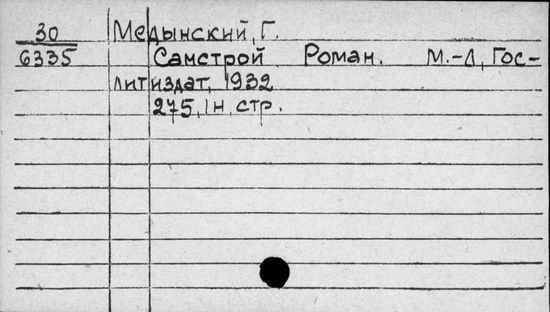 30 Медынский, Г.
6335 Самстрой Роман. М.-Л, Гос-
литиздат, 1932
275, 1 н. стр.